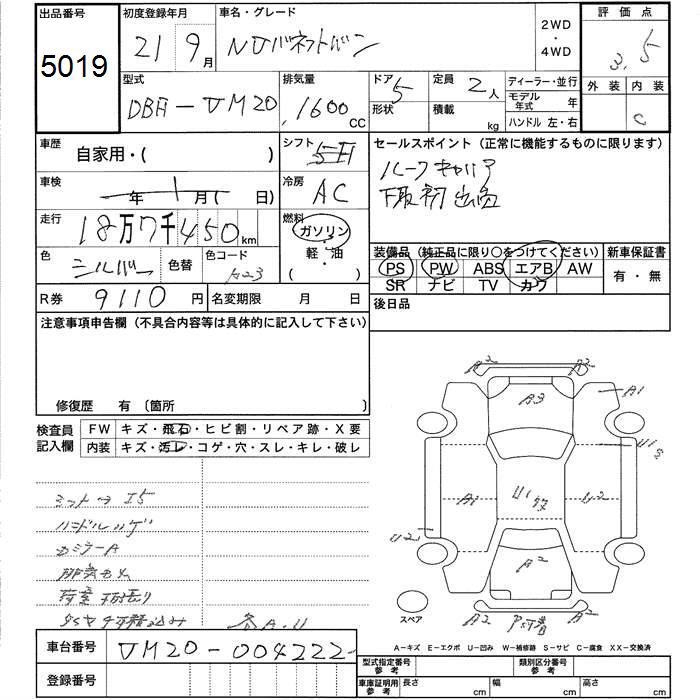 出品番号
5019
初度登録年月
21年9月
車名・グレード
NVバネットバン
2WD
・
4WD
評価点
3.5
型式
DBF-VM20
排気量
1600cc
ドア
5
形状
定員
2人
積載
kg
ディーラー・並行
モデル年式 年
ハンドル 左・右
外装
内装
C
車歴
自家用・( )
シフト
5F
セールスポイント (正常に機能するものに限ります)
ルーフキャリア
下取初出品
車検
年1月( 日)
冷房
AC
走行
18万7千450km
燃料
ガソリン
・
軽・油
( )
色
シルバー
色替
色コード
A23
装備品 (純正品に限り○をつけてください)
PS PW ABS エアB AW
SR ナビ TV カワ
新車保証書
有・無
R券
9110円
名変期限 月 日
後日品
注意事項申告欄 (不具合内容等は具体的に記入して下さい)
修復歴 有 〔箇所 〕
検査員記入欄
FW キズ・飛石・ヒビ割・リペア跡・X要
内装 キズ・汚レ・コゲ・穴・スレ・キレ・破レ
ハンドルハゲ
カミラーA
各A.U
A2
A2
A3
A1
U1S
A1
U1
U2
U2
A2
A2
A2
スペア
A-キズ E-エクボ U-凹み W-補修跡 S-サビ C-腐食 XX-交換済
車台番号
VM20-004222
登録番号
型式指定番号 参考
類別区分番号 参考
車庫証明用 参考
長さ cm
幅 cm
高さ cm